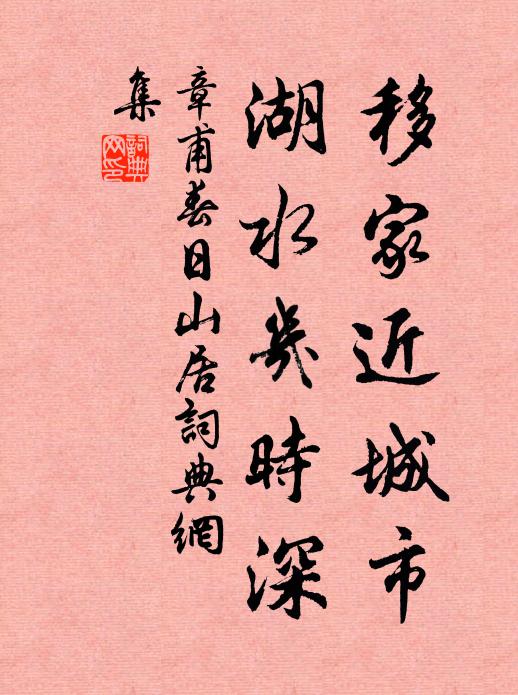 移家近城市
湖水幾時深
章甫春日山居詞典網
集
詞典
网印